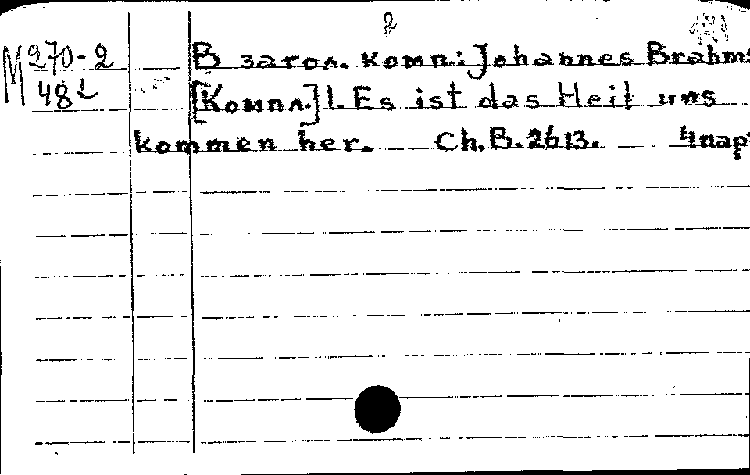 2
М 270-2 В загол. комп.: Johannes Brahms
482 [Компл.] 1. Es ist das Heil uns
kommen her. Ch. B. 2613. 4 пар